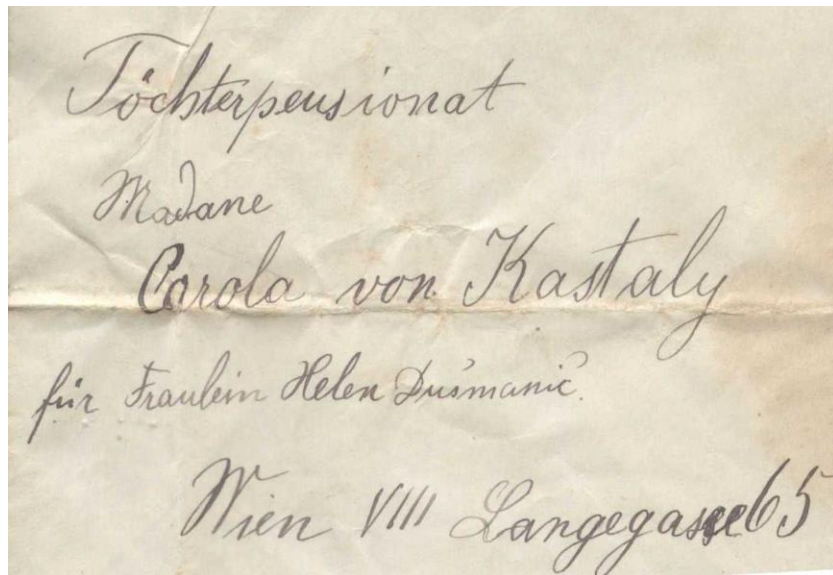 Töchterpensionat
Madane
Carola von Kastaly
für Fraulein Helen Dušmanić.
Wien VIII Langegasse 65